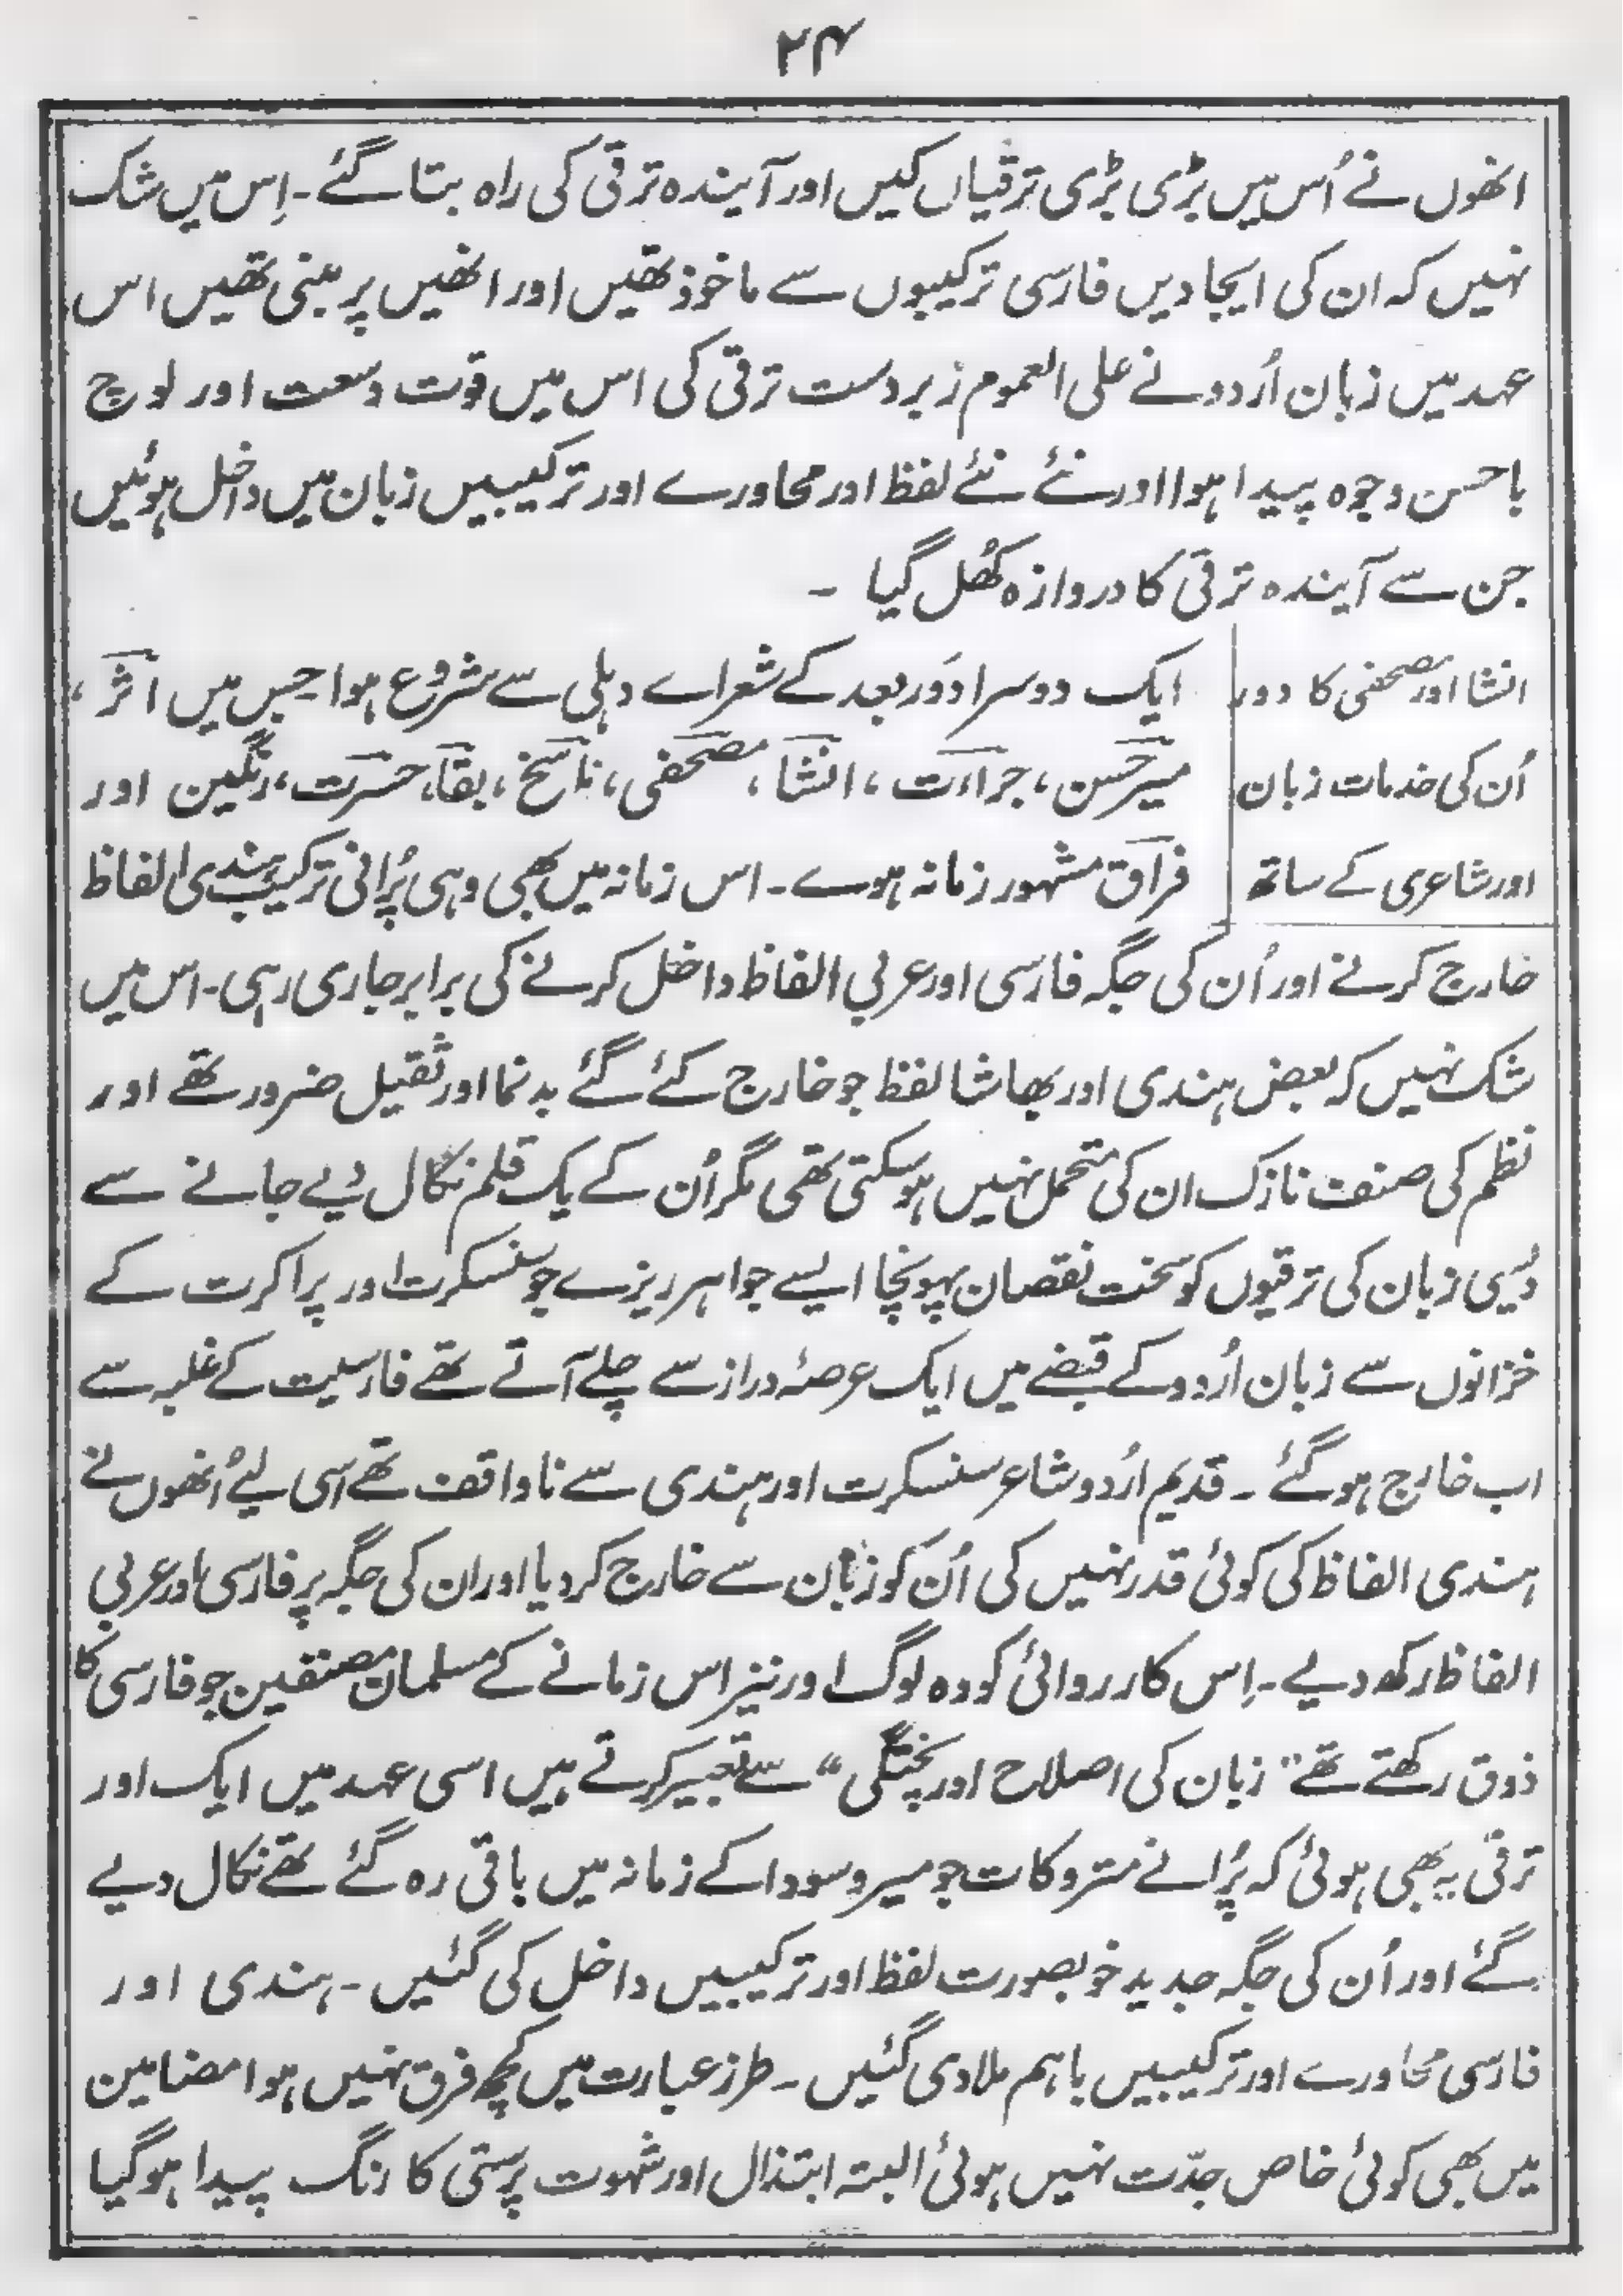 ۲۴
انھوں نے اُس میں بڑی بڑی ترقیاں کیں اور آیندہ ترقی کی راہ بتا گئے ۔ اِس میں شک
نہیں کہ ان کی ایجادیں فارسی ترکیبوں سے ماخوذ تھیں اور انھیں پر مبنی تھیں اس
عہد میں زبان اُردو نے علی العموم زبردست ترقی کی اس میں قوت وسعت اور لوچ
باحسن وجوہ پیدا ہوا اور نئے نئے لفظ اور محاورے اور ترکیبیں زبان میں داخل ہوئیں
جن سے آیندہ ترقی کا دروازہ کھُل گیا ۔
انشا اور مصحفی کا دور
اُن کی خدمات زبان
اور شاعری کے ساتھ
ایک دوسرا دَور بعد کے شعراے دہلی سے شروع ہوا جس میں اثر ،
میر حسن ، جراءت ، انشا ، مصحفی ، ناسخ ، بقا ، حسرت ، رنگین اور
فراق مشہور زمانہ ہوے ۔ اس زمانہ میں بھی وہی پُرانی ترکیب ہندی الفاظ
خارج کرنے اور اُن کی جگہ فارسی اور عربی الفاظ داخل کرنے کی برابر جاری رہی ۔ اس میں
شک نہیں کہ بعض ہندی اور بھاشا لفظ جو خارج کئے گئے بدنما اور ثقیل ضرور تھے اور
نظم کی صنف نازک ان کی متحمل نہیں ہو سکتی تھی مگر اُن کے یک قلم نکال دیے جانے سے
دیسی زبان کی ترقیوں کو سخت نقصان پہونچا ایسے جواہر ریزے جو سنسکرت اور پراکرت کے
خزانوں سے زبان اُردو کے قبضے میں ایک عرصۂ دراز سے چلے آتے تھے فارسیت کے غلبہ سے
اب خارج ہو گئے ۔ قدیم اُردو شاعر سنسکرت اور ہندی سے ناواقف تھے اسی لیے اُنھوں نے
ہندی الفاظ کی کوئی قدر نہیں کی اُن کو زبان سے خارج کر دیا اور ان کی جگہ پر فارسی اور عربی
الفاظ رکھ دیے ۔ اِس کارروائی کو وہ لوگ اور نیز اس زمانے کے مسلمان مصنفین جو فارسی کا
ذوق رکھتے تھے "زبان کی اصلاح اور پختگی" سے تعبیر کرتے ہیں اسی عہد میں ایک اور
ترقی یہ بھی ہوئی کہ پُرانے متروکات جو میر و سودا کے زمانہ میں باقی رہ گئے تھے نکال دیے
گئے اور اُن کی جگہ جدید خوبصورت لفظ اور ترکیبیں داخل کی گئیں ۔ ہندی اور
فارسی محاورے اور ترکیبیں باہم ملا دی گئیں ۔ طرز عبارت میں کچھ فرق نہیں ہوا مضامین
میں بھی کوئی خاص جدّت نہیں ہوئی البتہ ابتذال اور شہوت پرستی کا رنگ پیدا ہو گیا